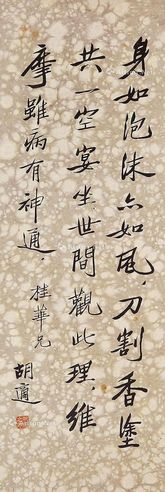 身如泡沫亦如風，刀割香塗
共一空宴坐世間觀此理，維
摩雖病有神通，
桂華兄
胡適